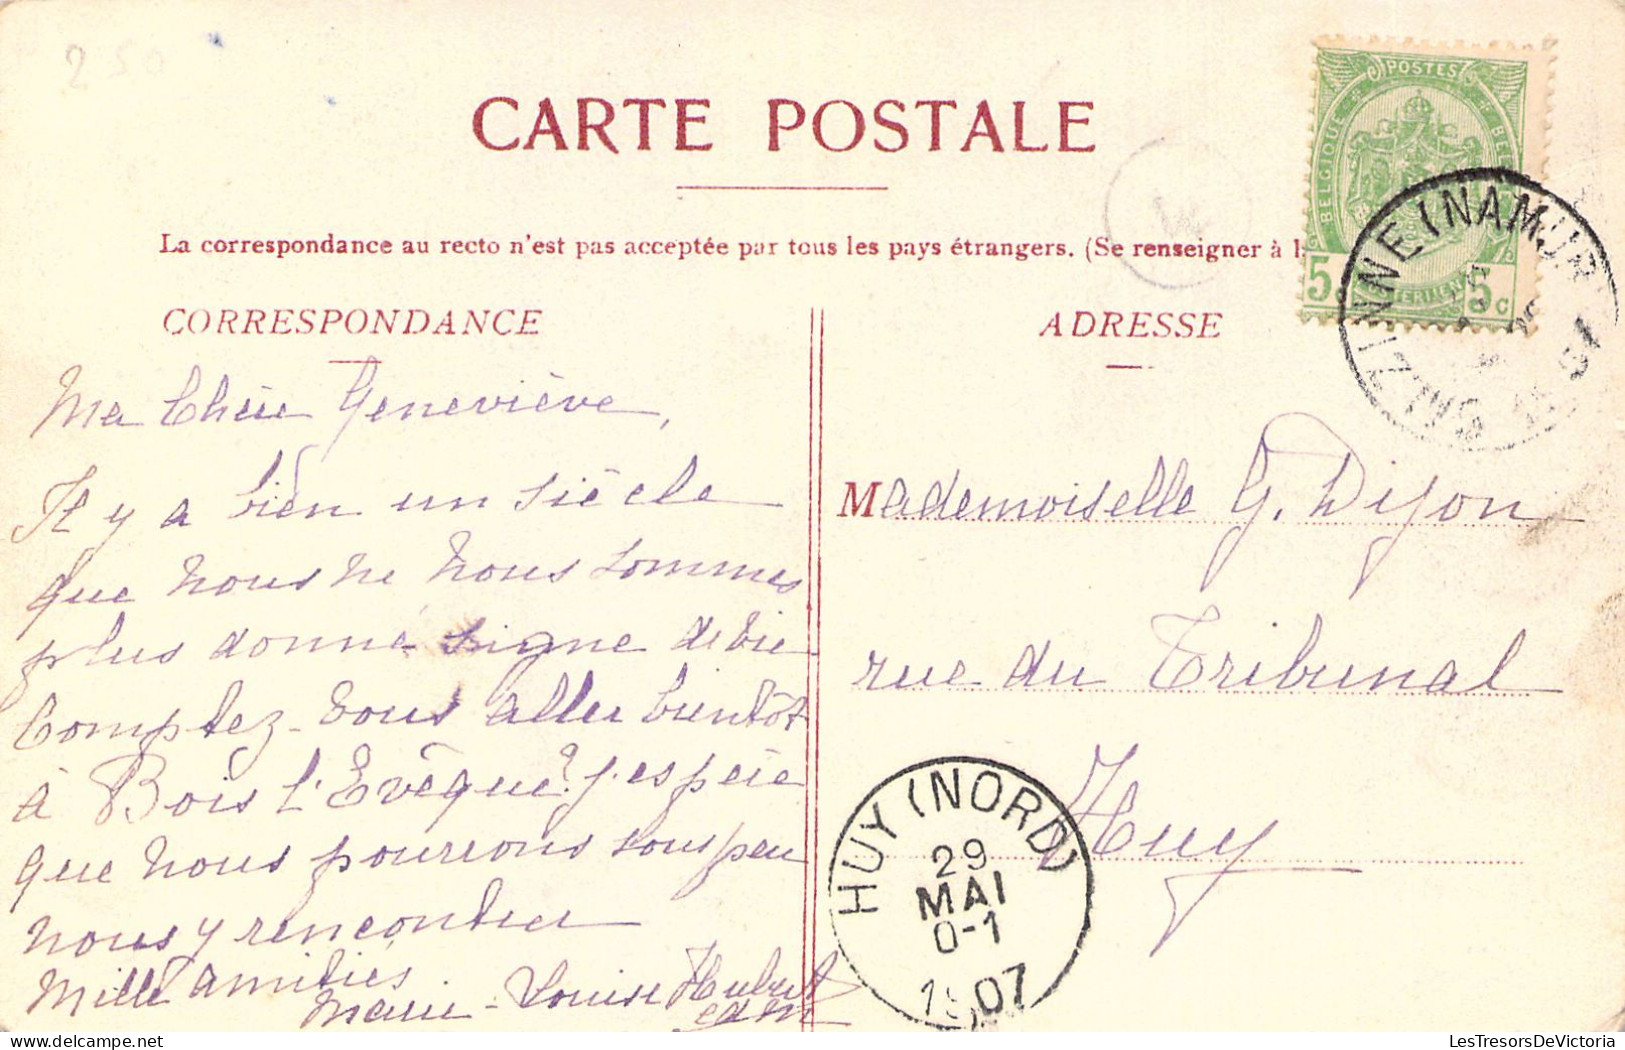 250
CARTE POSTALE
La correspondance au recto n'est pas acceptée par tous les pays étrangers. (Se renseigner à l
CORRESPONDANCE
Ma Chère Geneviève,
Il y a bien un siècle
que nous ne nous sommes
plus donné signe de vie
Comptez-vous aller bientôt
à Bois l'Evêque? j'espère
que nous pourrons sous peu
nous y rencontrer
Mille amitiés
Marie-Louise Hubert
ADRESSE
Mademoiselle G. Dijon
rue du Tribunal
Huy
POSTES
BELGIQUE
5c 5c
ZINNE (NAMUR)
HUY (NORD)
29
MAI
0-1
1907
LesTresorsDeVictoria